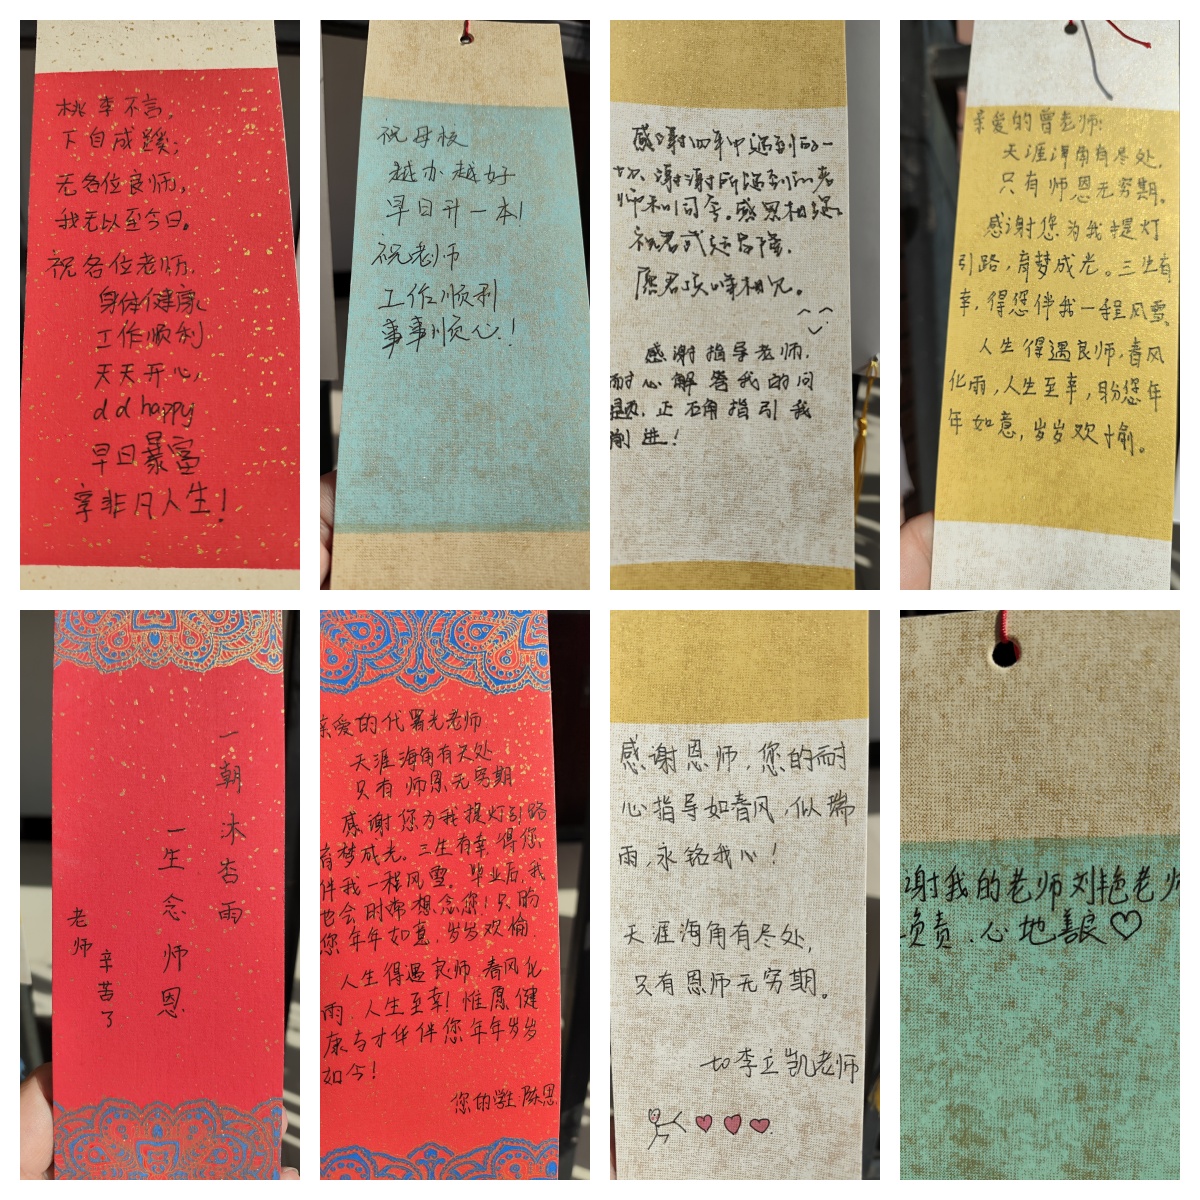 桃李不言,
下自成蹊;
无各位良师,
我无以至今日。
祝各位老师,
身体健康,
工作顺利
天天开心,
d d happy
早日暴富
享非凡人生!
祝母校
越办越好
早日升一本!
祝老师
工作顺利
事事顺心!
感谢四年中遇到的一
切,谢谢所遇到的老
师和同学。感恩相遇。
祝君武运昌隆,
愿君顶峰相见。
感谢指导老师,
耐心解答我的问
题,正确指引我
前进!
亲爱的曾老师:
天涯海角有尽处,
只有师恩无穷期。
感谢您为我提灯
引路,育梦成光。三生有
幸,得您伴我一程风雪,
人生得遇良师,春风
化雨,人生至幸,盼您年
年如意,岁岁欢愉。
一朝沐杏雨
一生念师恩
老师
辛苦了
亲爱的代署光老师
天涯海角有尽处
只有师恩无穷期
感谢您为我提灯引路
育梦成光。三生有幸,得您
伴我一程风雪。毕业后,我
也会时常想念您!只盼
您年年如意,岁岁欢愉。
人生得遇良师,春风化
雨,人生至幸!惟愿健
康与才华伴您年年岁岁
如今!
您的学生 陈思
感谢恩师,您的耐
心指导如春风,似瑞
雨,永铭我心!
天涯海角有尽处,
只有恩师无穷期。
to李立凯老师
谢我的老师刘艳老师
负责,心地善良♡